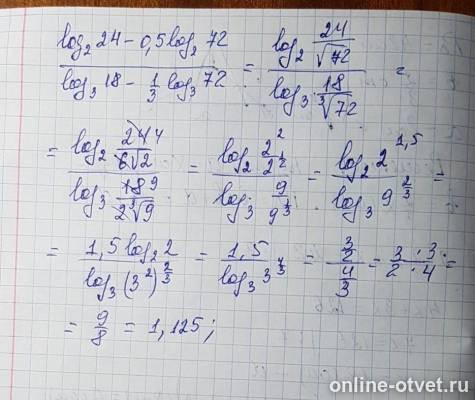 (log₂ 24 − 0,5 log₂ 72) / (log₃ 18 − 1/3 log₃ 72) = (log₂ 24/√72) / (log₃ 18/∛72) =
= (log₂ 24 4/6√2) / (log₃ 18 9/2∛9) = (log₂ 2²/2^(1/2)) / (log₃ 9/9^(1/3)) = (log₂ 2^(1,5)) / (log₃ 9^(2/3)) =
= (1,5 log₂ 2) / (log₃ (3²)^(2/3)) = 1,5 / (log₃ 3^(4/3)) = (3/2) / (4/3) = (3 · 3)/(2 · 4) =
= 9/8 = 1,125;
online-otvet.ru